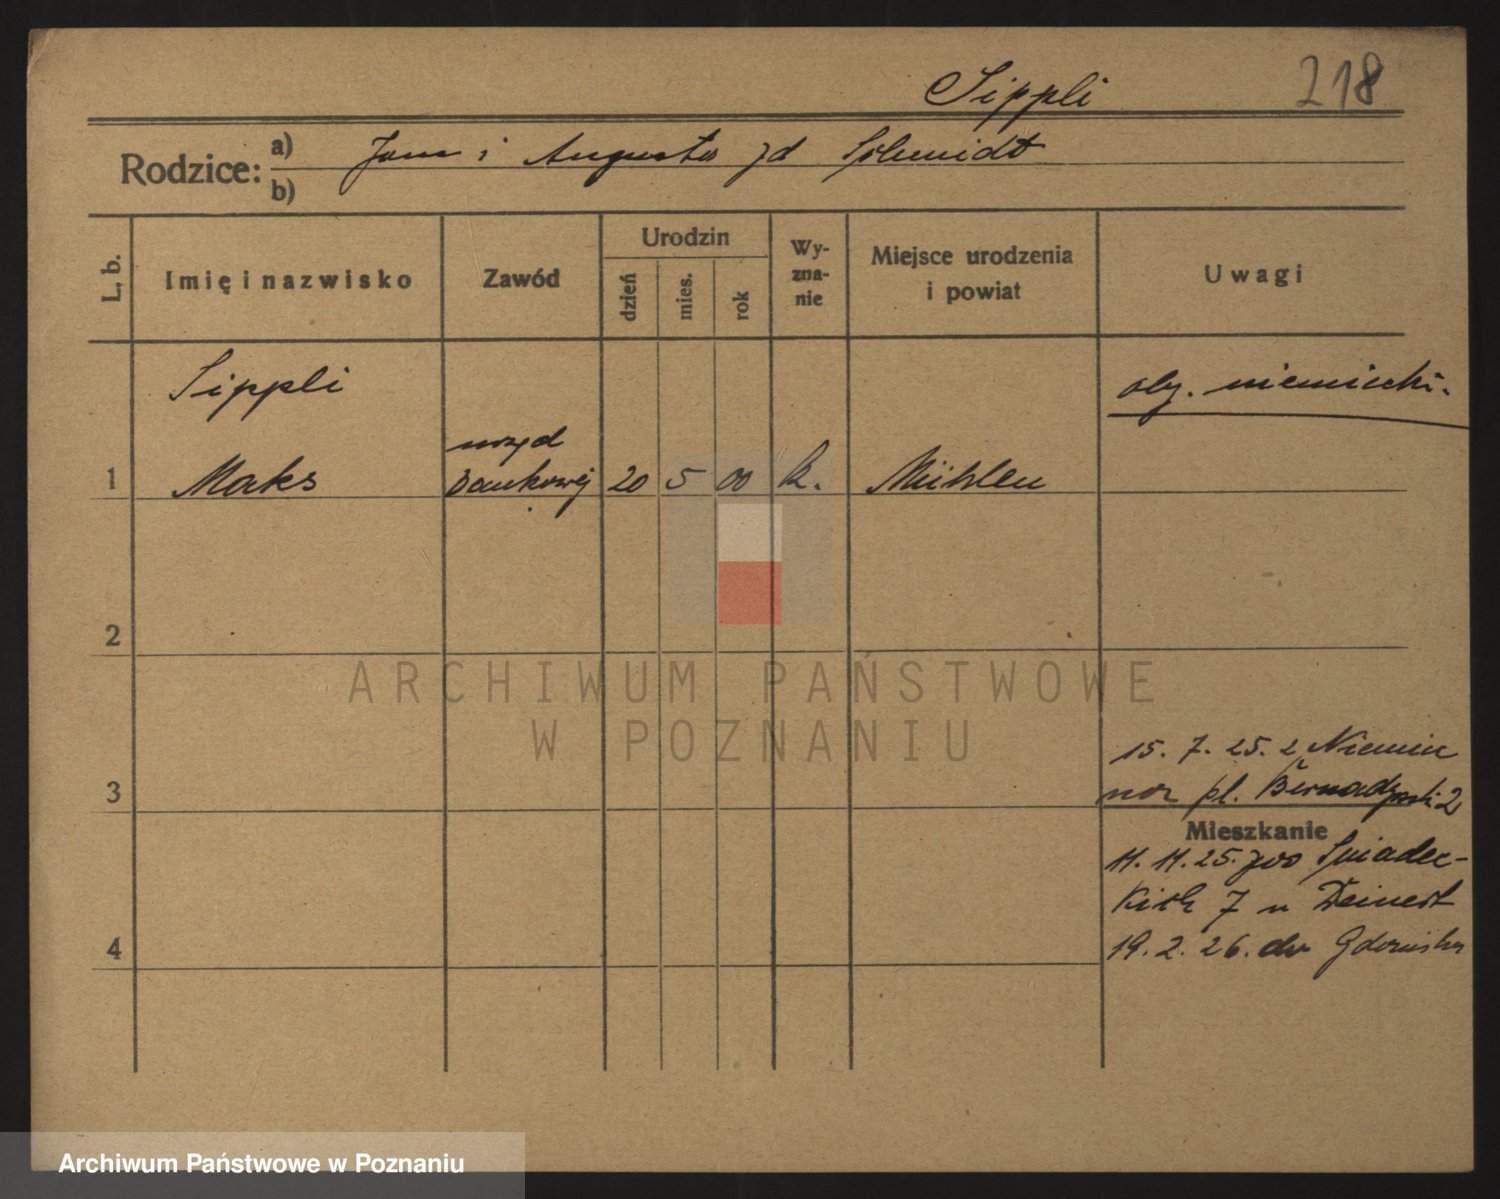 Sippli 218
Rodzice: a) Jan i Augusta zd Schmidt
b)
L. b. Imię i nazwisko Zawód Urodzin dzień mies. rok Wyzna-nie Miejsce urodzenia i powiat Uwagi
Sippli oby. niemiecki.
urzęd
1 Maks bankowej 20 5 00 k. Mühlen
2
ARCHIWUM PAŃSTWOWE
W POZNANIU
15. 7. 25. z Niemiec
3 pl. Bernadyński 2
Mieszkanie
11. 11. 25. Śniadec-
kich 7 u Deinert
4 19. 2. 26. do Gdańska
Archiwum Państwowe w Poznaniu